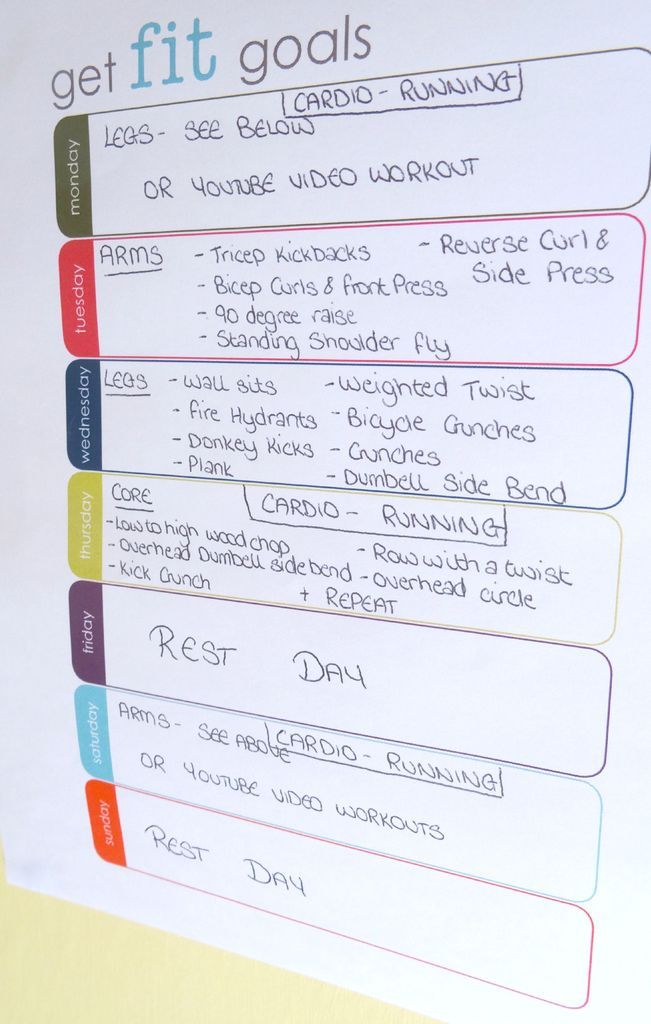 get fit goals
monday
CARDIO - RUNNING
LEGS - SEE BELOW
OR YOUTUBE VIDEO WORKOUT
tuesday
ARMS
- Tricep Kickbacks
- Bicep Curls & front Press
- 90 degree raise
- Standing Shoulder fly
- Reverse Curl &
Side Press
wednesday
LEGS
- Wall sits
- fire Hydrants
- Donkey Kicks
- Plank
- Weighted Twist
- Bicycle Crunches
- Crunches
- Dumbell Side Bend
thursday
CORE
CARDIO - RUNNING
- Low to high wood chop
- Overhead Dumbell side bend
- Kick Crunch
- Row with a twist
- Overhead circle
+ REPEAT
friday
REST DAY
saturday
ARMS - SEE ABOVE
CARDIO - RUNNING
OR YOUTUBE VIDEO WORKOUTS
sunday
REST DAY